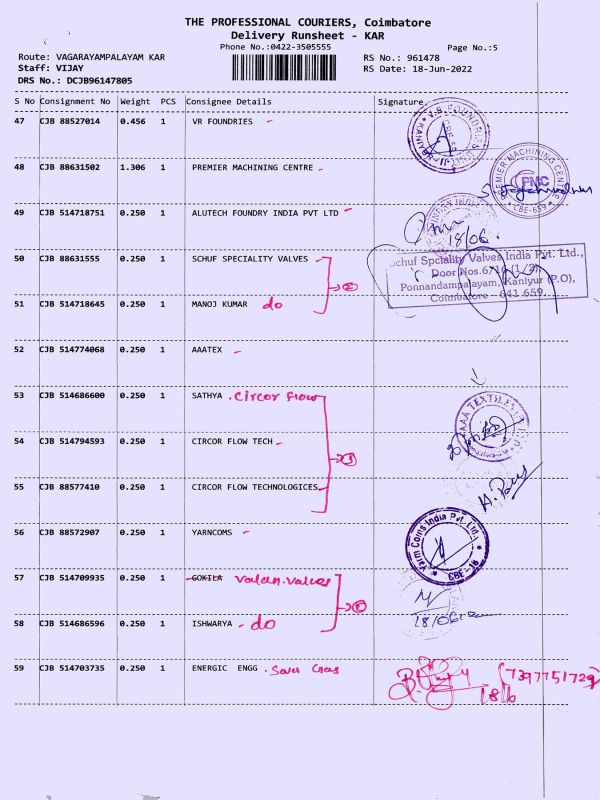 THE PROFESSIONAL COURIERS, Coimbatore
Delivery Runsheet - KAR
Phone No.:0422-3505555
Page No.:5
Route: VAGARAYAMPALAYAM KAR
RS No.: 961478
Staff: VIJAY
RS Date: 18-Jun-2022
DRS No.: DCJB96147805
S No Consignment No Weight PCS Consignee Details Signature
47 CJB 88527014 0.456 1 VR FOUNDRIES
48 CJB 88631502 1.306 1 PREMIER MACHINING CENTRE
PREMIER MACHINING CENTRE
PMC
CBE-659
49 CJB 514718751 0.250 1 ALUTECH FOUNDRY INDIA PVT LTD
18/06
50 CJB 88631555 0.250 1 SCHUF SPECIALITY VALVES
Schuf Spciality Valves India Pvt. Ltd.,
Ponnandampalayam, Kaniyur (P.O),
Coimbatore - 641 659.
51 CJB 514718645 0.250 1 MANOJ KUMAR do
52 CJB 514774068 0.250 1 AAATEX
53 CJB 514686600 0.250 1 SATHYA . Circor flow
54 CJB 514794593 0.250 1 CIRCOR FLOW TECH
3
55 CJB 88577410 0.250 1 CIRCOR FLOW TECHNOLOGICES
56 CJB 88572907 0.250 1 YARNCOMS
Yarn Coms India Pvt. Ltd.,
57 CJB 514709935 0.250 1 GOKILA Valan. Valves
58 CJB 514686596 0.250 1 ISHWARYA - do
18/06
59 CJB 514703735 0.250 1 ENERGIC ENGG
18/6